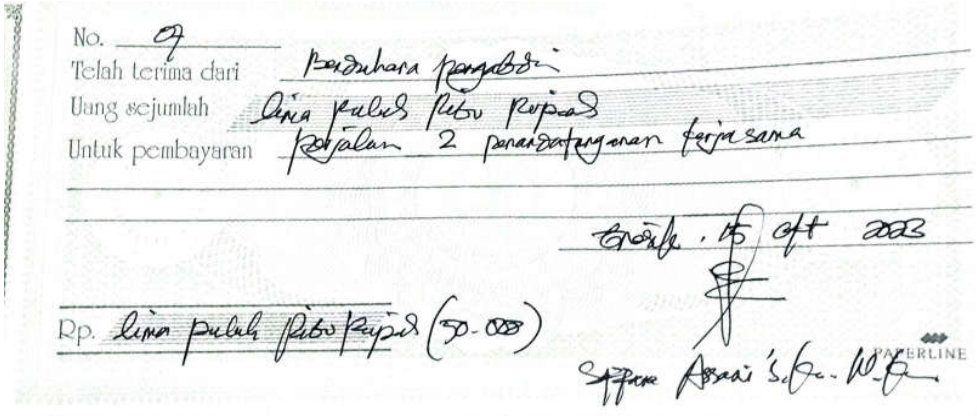 No. 07
Telah terima dari Bendahara pengabdi
Uang sejumlah lima puluh Ribu Rupiah
Untuk pembayaran perjalan 2 penandatanganan kerja sama
15 okt 2023
Rp. lima puluh Ribu Rupiah (50.000)
PAPERLINE